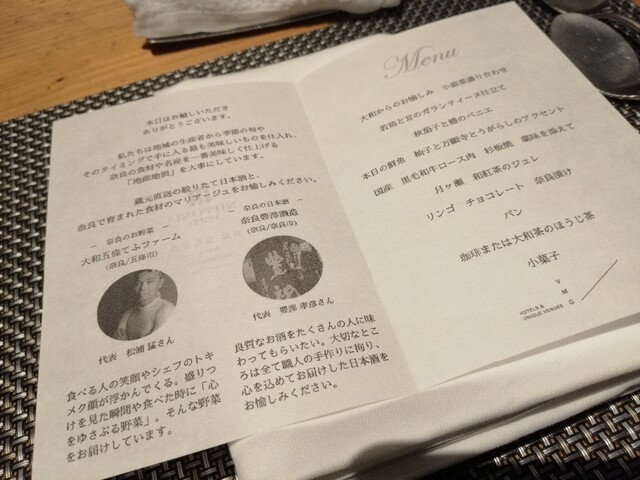 本日はお越しいただき
ありがとうございます。
私たちは地域の生産者から季節の旬や
そのタイミングで手に入る最も美味しいものを仕入れ、
奈良の食材や名産を一番美味しく仕上げる
「地産地消」を大事にしています。
蔵元直送の搾りたて日本酒と、
奈良で育まれた食材のマリアージュをお愉しみください。
― 奈良のお野菜 ―
大和五條てふファーム
(奈良/五條市)
代表 松浦 猛さん
食べる人の笑顔やシェフのトキ
メク顔が浮かんでくる。盛りつ
けを見た瞬間や食べた時に「心
をゆさぶる野菜」。そんな野菜
をお届けしています。
― 奈良の日本酒 ―
奈良豊澤酒造
(奈良/奈良市)
代表 豊澤 孝彦さん
良質なお酒をたくさんの人に味
わってもらいたい。大切なとこ
ろは全て職人の手作りに拘り、
心を込めてお届けした日本酒を
お愉しみください。
Menu
大和からのお愉しみ 小前菜盛り合わせ
若鶏と茸のガランティーヌ仕立て
秋茄子と鱧のベニエ
本日の鮮魚 柚子と万願寺とうがらしのアクセント
国産 黒毛和牛ロース肉 杉板焼 薬味を添えて
月ヶ瀬 和紅茶のジュレ
リンゴ チョコレート 奈良漬け
パン
珈琲または大和茶のほうじ茶
小菓子
HOTELS &
UNIQUE VENUES
V
M
G